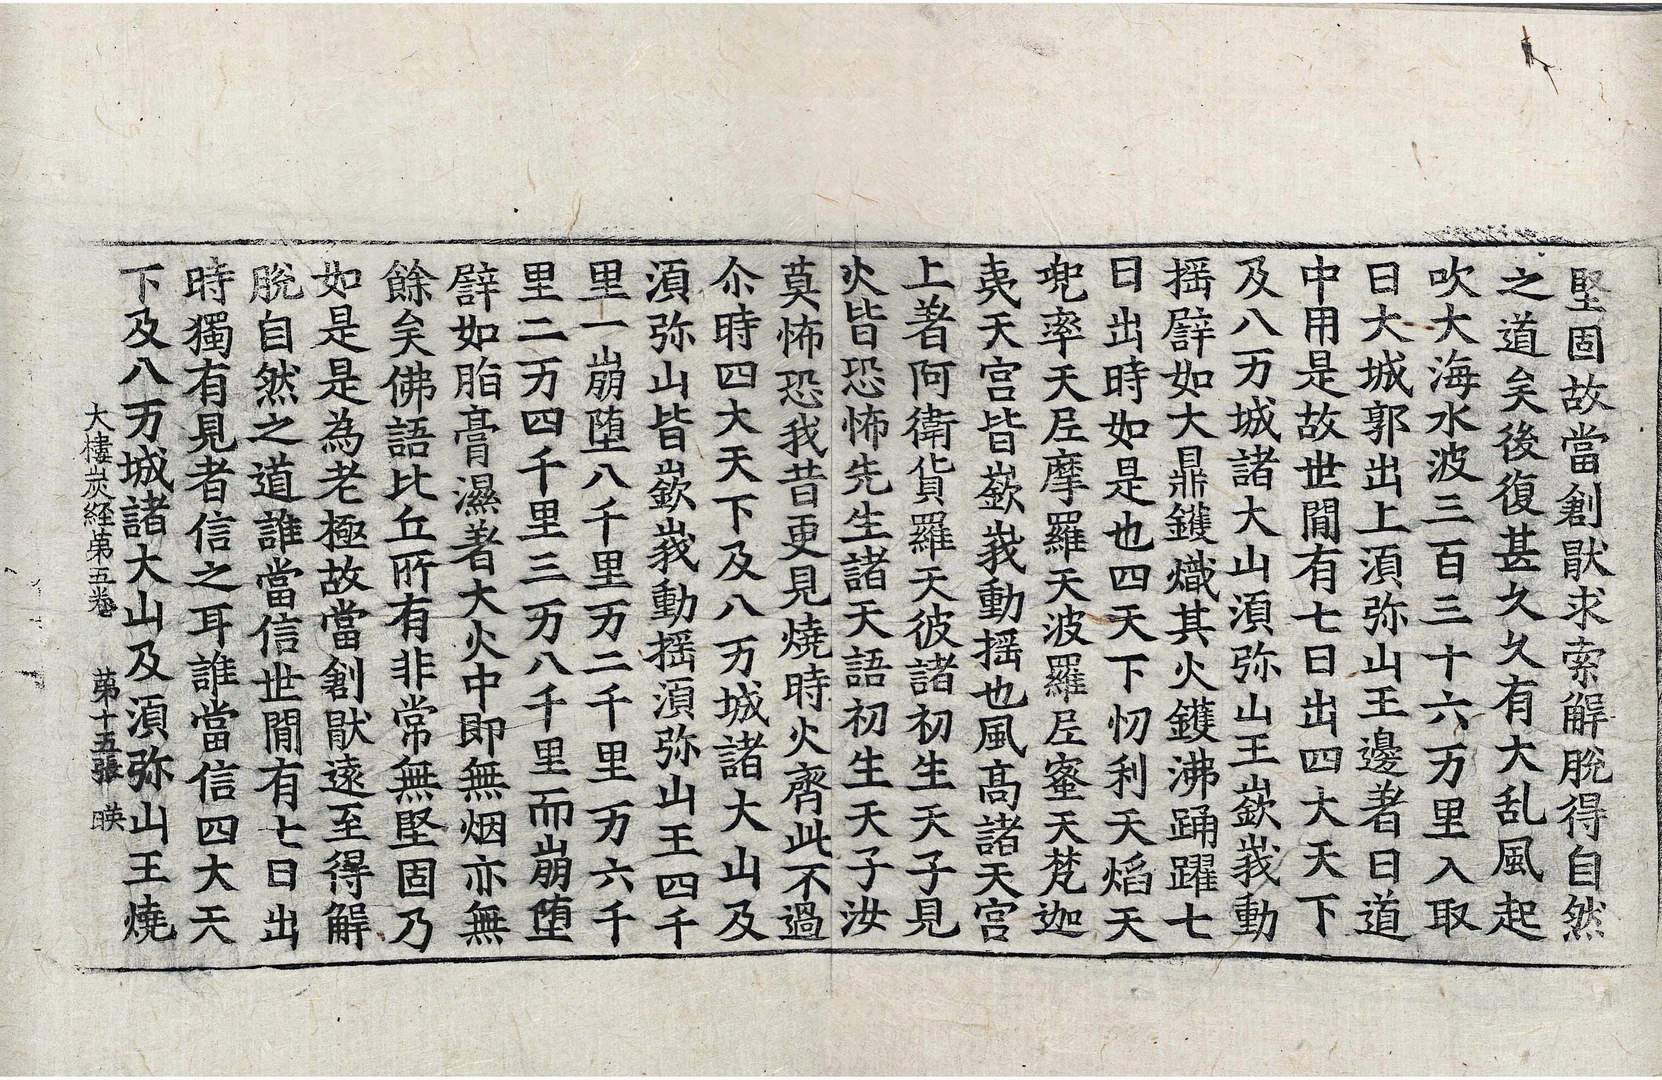 堅固故當創猒求索解脫得自然
之道矣後復甚久久有大乱風起
吹大海水波三百三十六万里入取
日大城郭出上湏弥山王邊著日道
中用是故世間有七日出四大天下
及八万城諸大山湏弥山王嶔峩動
揺譬如大鼎鑊熾其火鑊沸踊躍七
日出時如是也四天下忉利天焰天
兜率天𡰱摩羅天波羅𡰱蜜天梵迦
夷天宫皆嶔峩動揺也風髙諸天宫
上著阿衛貨羅天彼諸初生天子見
火皆恐怖先生諸天語初生天子汝
莫怖恐我昔更見燒時火齊此不過
尒時四大天下及八万城諸大山及
湏弥山皆嶔峩動揺湏弥山王四千
里一崩墮八千里万二千里万六千
里二万四千里三万八千里而崩墮
譬如脂膏濕著大火中即無烟亦無
餘矣佛語比丘所有非常無堅固乃
如是是為老極故當創猒遠至得解
脫自然之道誰當信世間有七日出
時獨有見者信之耳誰當信四大天
下及八万城諸大山及湏弥山王燒
大樓炭経第五卷 苐十五張 暎